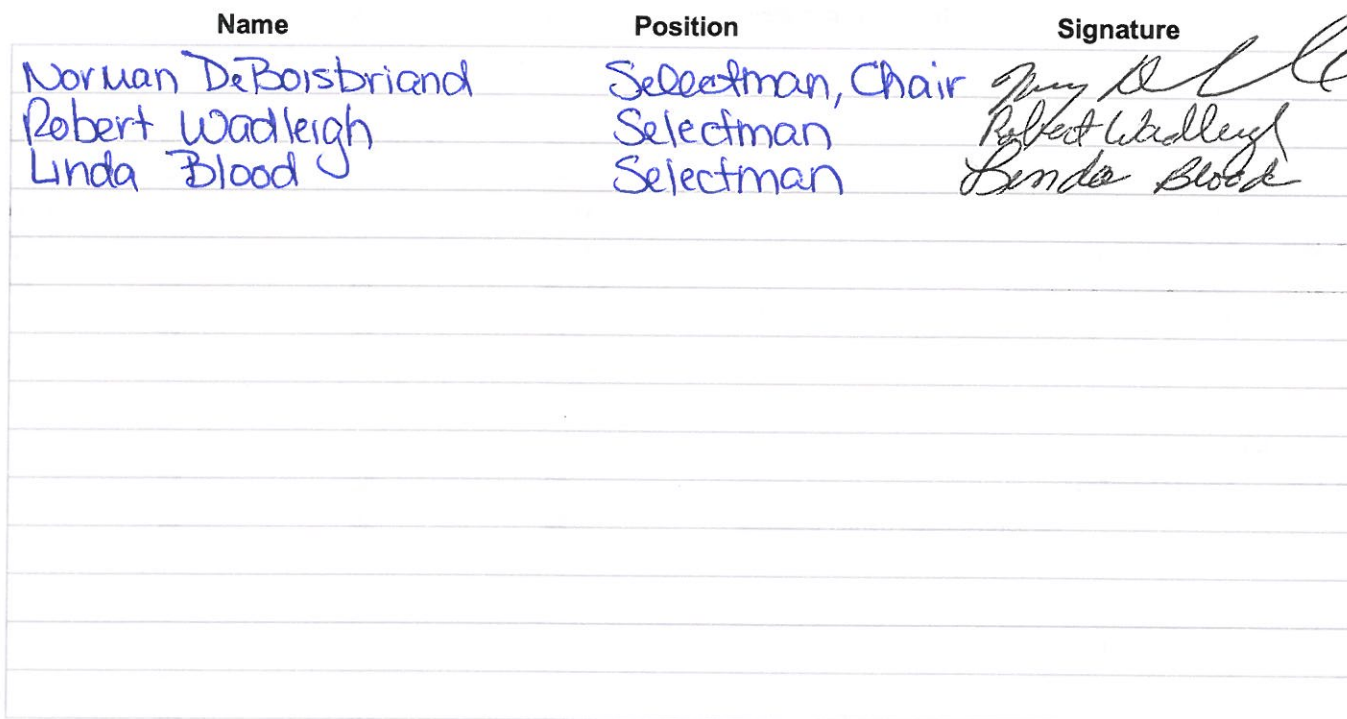 Name Position Signature
Norman DeBoisbriand Selectman, Chair
Robert Wadleigh Selectman Robert Wadleigh
Linda Blood Selectman Linda Blood